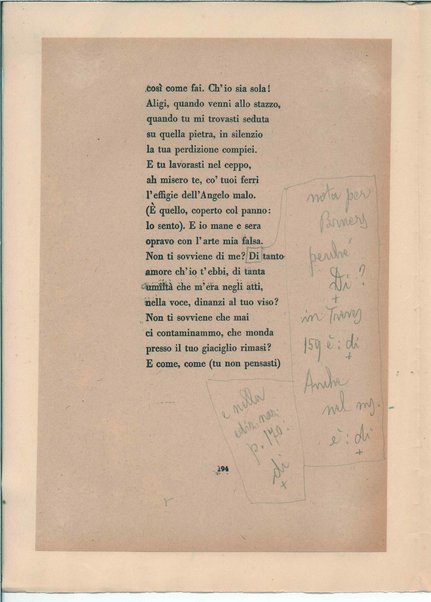 così come fai. Ch'io sia sola!
Aligi, quando venni allo stazzo,
quando tu mi trovasti seduta
su quella pietra, in silenzio
la tua perdizione compiei.
E tu lavorasti nel ceppo,
ah misero te, co' tuoi ferri
l'effigie dell'Angelo malo.
(È quello, coperto col panno:
lo sento). E io mane e sera
opravo con l'arte mia falsa.
Non ti sovviene di me? Di tanto
amore ch'io t'ebbi, di tanta
umiltà che m'era negli atti,
nella voce, dinanzi al tuo viso?
Non ti sovviene che mai
ci contaminammo, che monda
presso il tuo giaciglio rimasi?
E come, come (tu non pensasti)
nota per
perché
Di?
+
in Treves
159 è: di
+
Anche
nel ms.
è: di
+
e nella
ediz. naz.
p. 170.
di
+
194